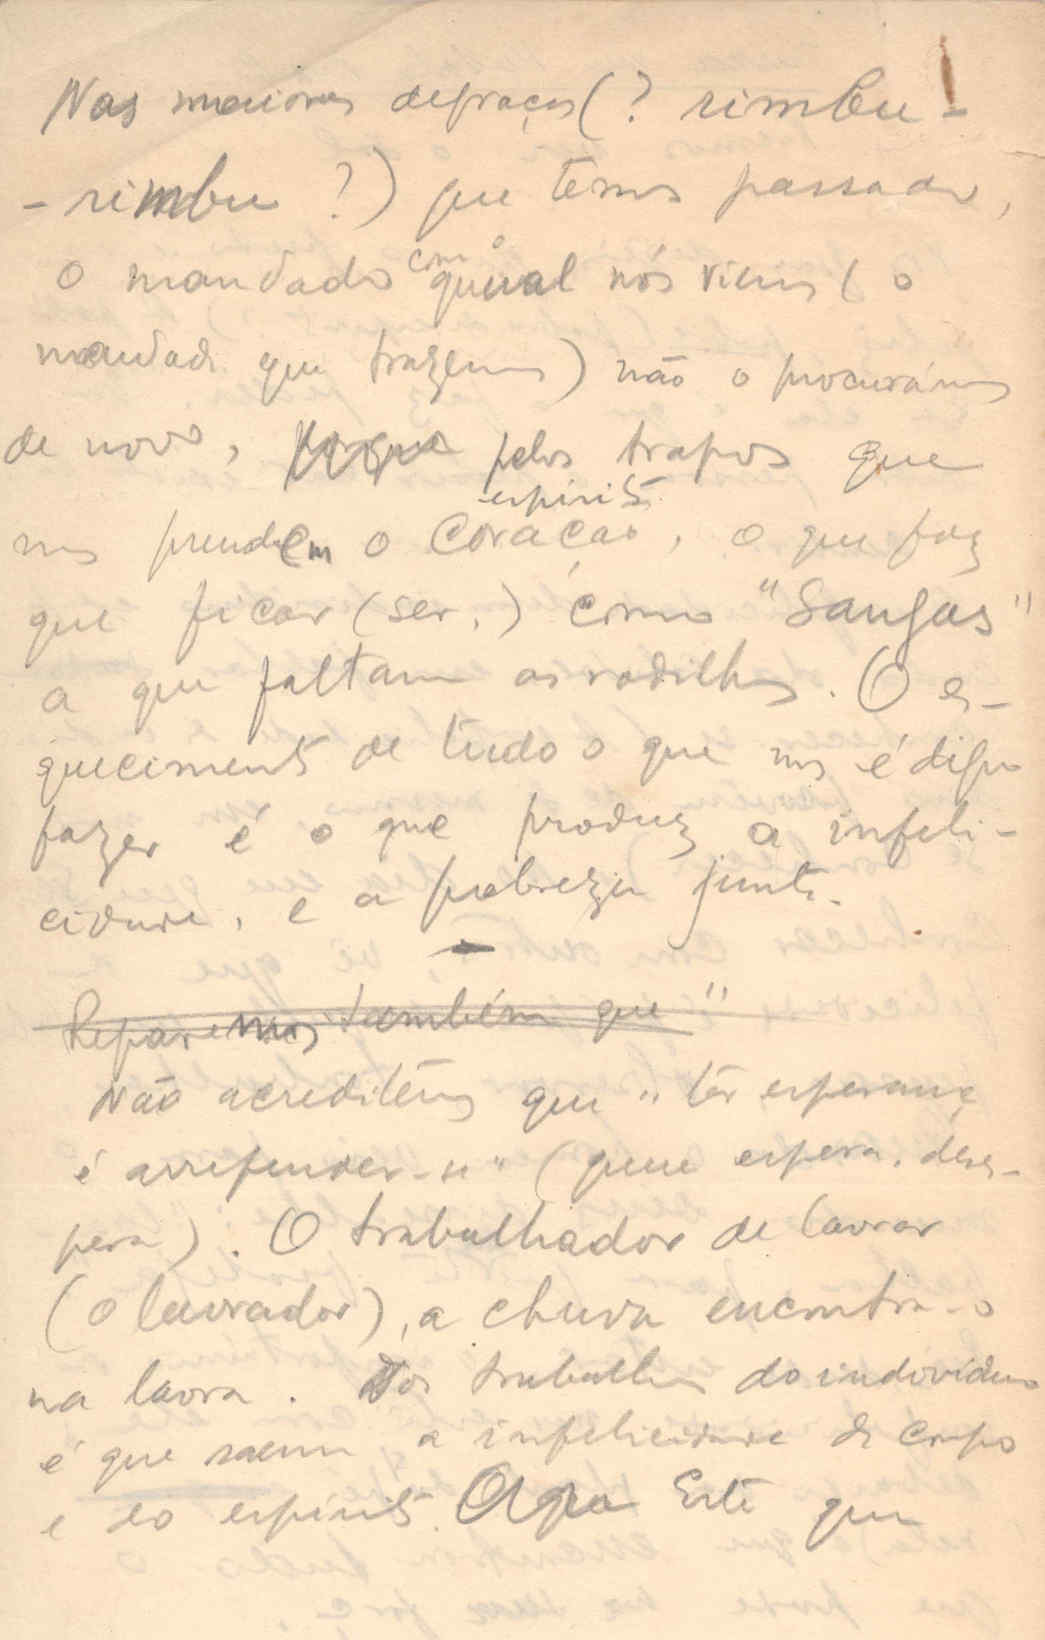 Nas maiores desgraças (? rimbu-
-rimbu ?) que temos passado,
com o
O mandado qual nós viemos (o
mandado que trazemos) não o procurámos
de novo, pelos trapos que
espírito
nos prendem o coração, o que faz
que ficar (ser,) como "Sangas"
a que faltam as rodilhas. O es-
quecimento de tudo o que nos é digno
fazer é o que produz a infeli-
cidade, e a pobreza junto.
Reparemos também que"
Não acreditemos que "ter esperança
é arrepender-se" (quem espera, deses-
pera). O trabalhador de lavrar
(o lavrador), a chuva encontra-o
na lavra. Dos trabalhos do indivíduo
é que saem a infelicidade do corpo
e do espírito. Este que